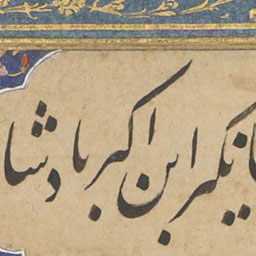 انگیر ابن اکبر بادشا